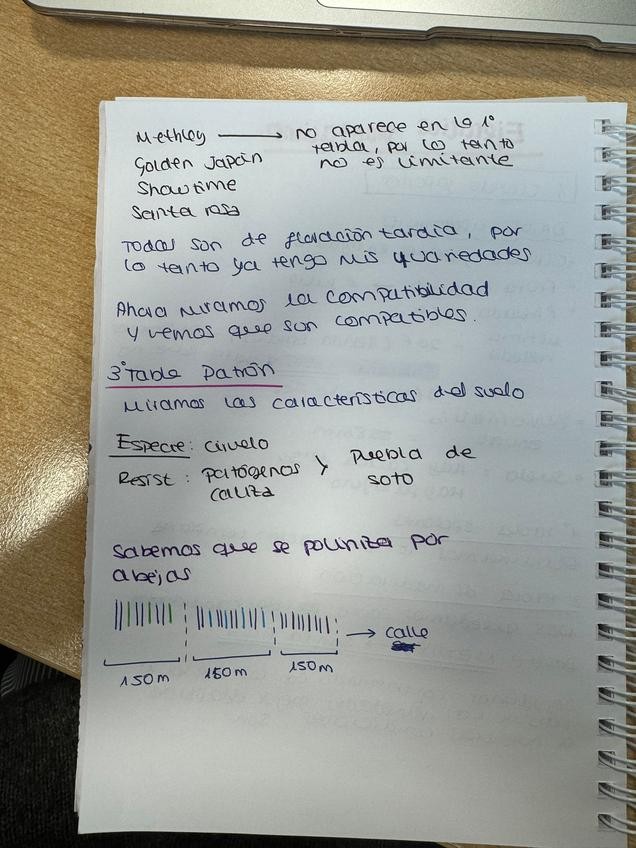 Methley → no aparece en la 1º
tabla, por lo tanto
Golden Japan no es limitante
Showtime
Santa rosa
Todas son de floración tardía, por
lo tanto ya tengo mis 4 variedades
Ahora miramos la compatibilidad
y vemos que son compatibles.
3º Table Patrón
Miramos las características del suelo
Especie: ciruelo
Resist: patógenos y Puebla de
caliza soto
Sabemos que se poliniza por
abejas
→ calle
150m 150m 150m